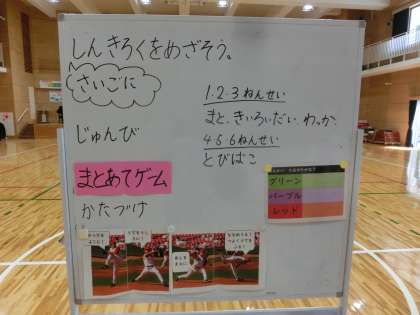 しんきろくをめざそう。
さいごに
じゅんび
まとあてゲーム
かたづけ
1・2・3ねんせい
まと、きいろいだい、わっか
4・5・6ねんせい
とびばこ
グリーン
パープル
レッド